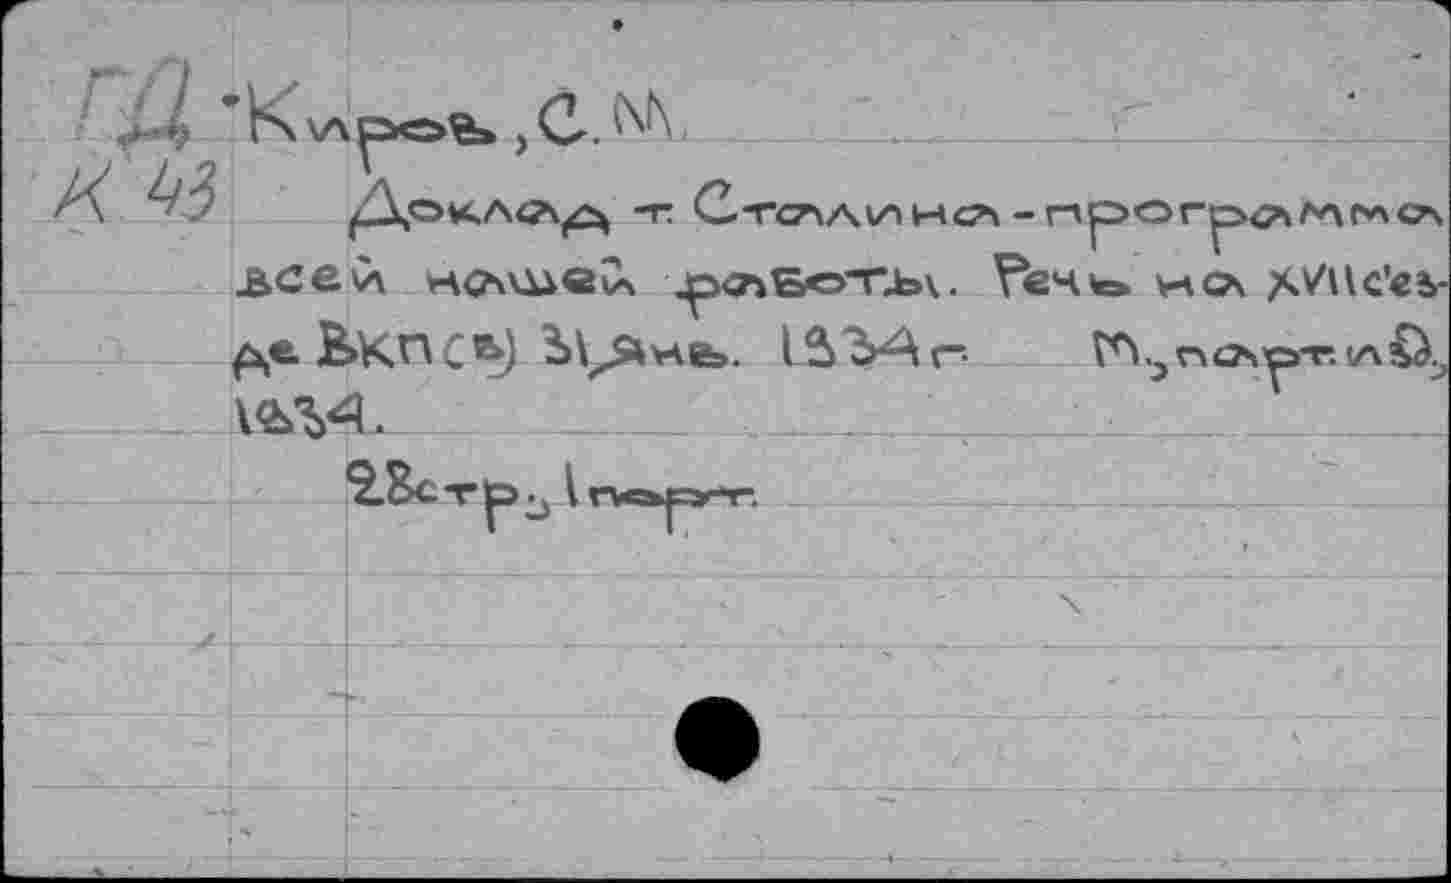 ГД Киров, С. М.
К 43 Доклад т. Сталина - программа
всей нашей работы. Речь на XVII съез-
де ВКП(в) 31 янв. 1934 г. М., парт. изд.,
1934.
28 стр., 1 портр.